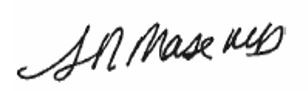 SN Mase MD